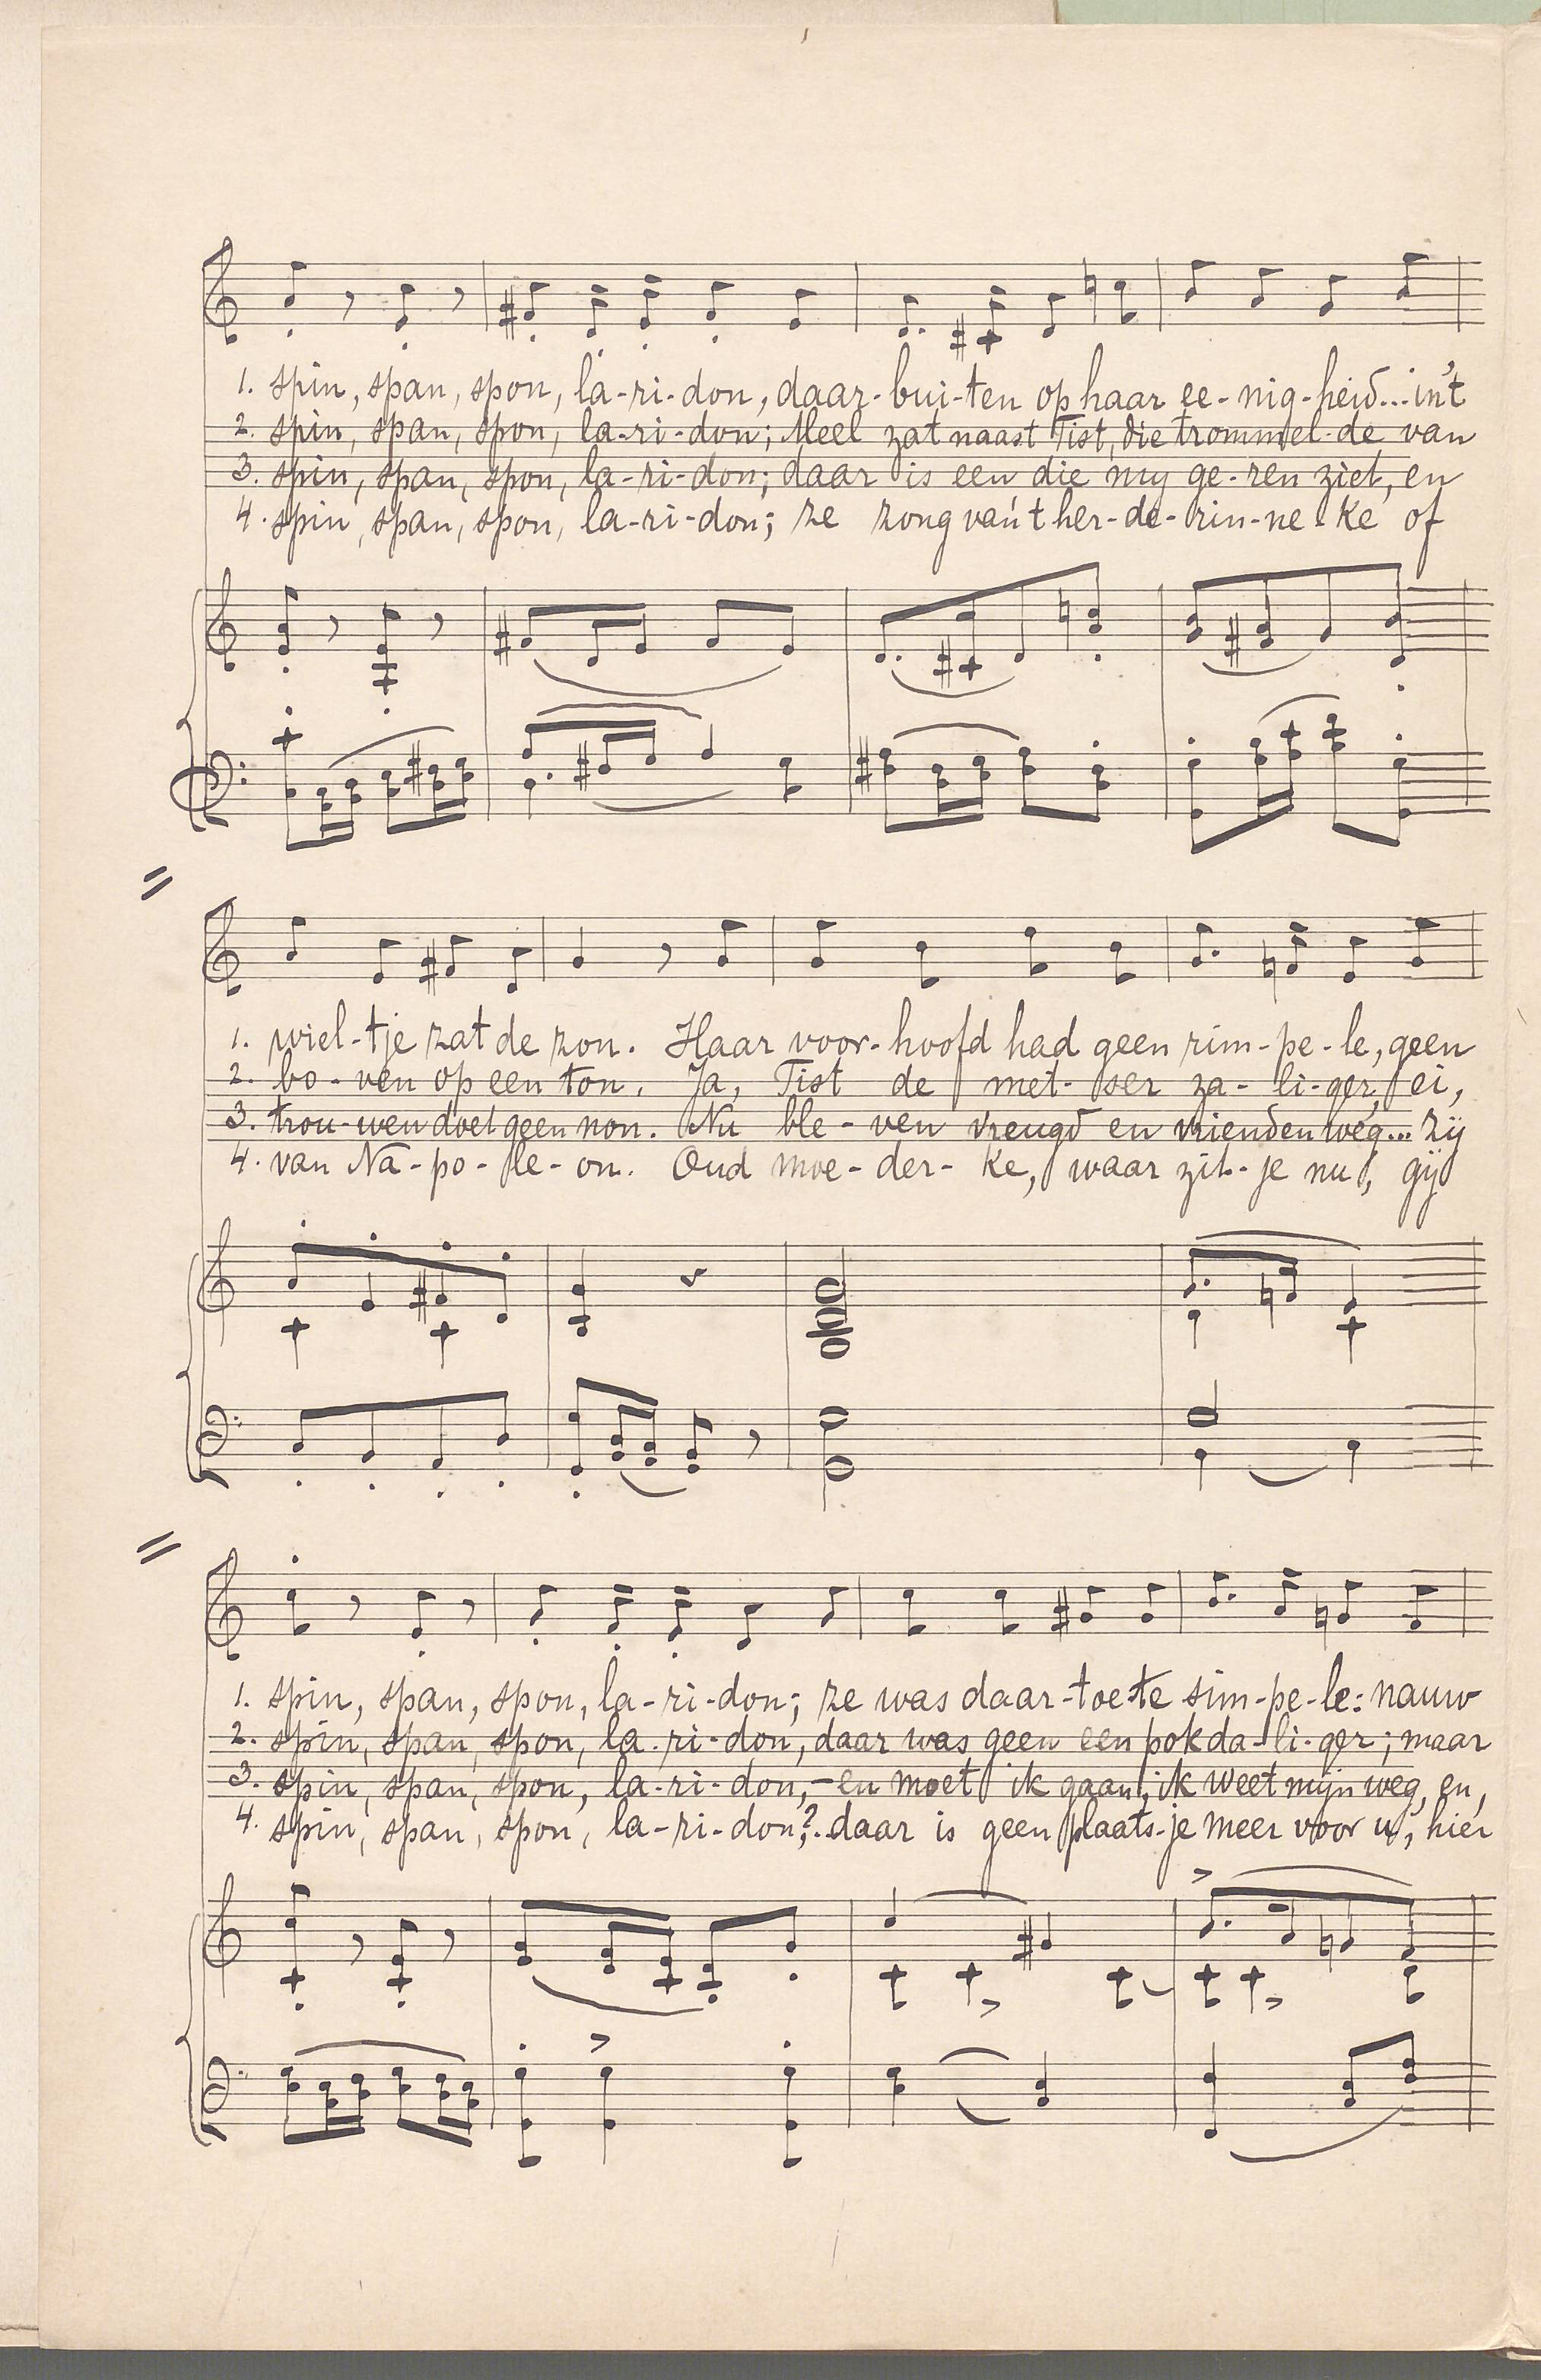 1. spin, span, spon, la-ri-don, daar-bui-ten op haar ee-nig-heid... in't
2. spin, span, spon, la-ri-don; Meel zat naast Tist, die trommel-de van
3. spin, span, spon, la-ri-don; daar is een die my ge-ren ziet, en
4. spin, span, spon, la-ri-don; ze zong van't her-de-rin-ne-ke of
1. wiel-tje zat de zon. Haar voor-hoofd had geen rim-pe-le, geen
2. bo-ven op een ton. Ja, Tist de met-ser za-li-ger, ei,
3. trou-wen doet geen non. Nu ble-ven vreugd en vrienden weg... zij
4. van Na-po-le-on. Oud moe-der-ke, waar zit-je nu, gij
1. spin, span, spon, la-ri-don; ze was daar-toe te sim-pe-le: nauw
2. spin, span, spon, la-ri-don, daar was geen een pokda-li-ger; maar
3. spin, span, spon, la-ri-don, - en moet ik gaan, ik weet mijn weg, en,
4. spin, span, spon, la-ri-don?.. daar is geen plaats-je meer voor u, hier